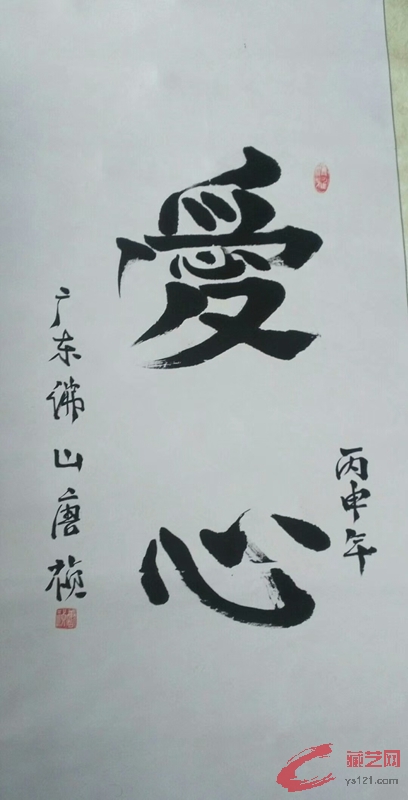 愛心
丙申年
广东佛山唐祯
藏艺网
ys121.com